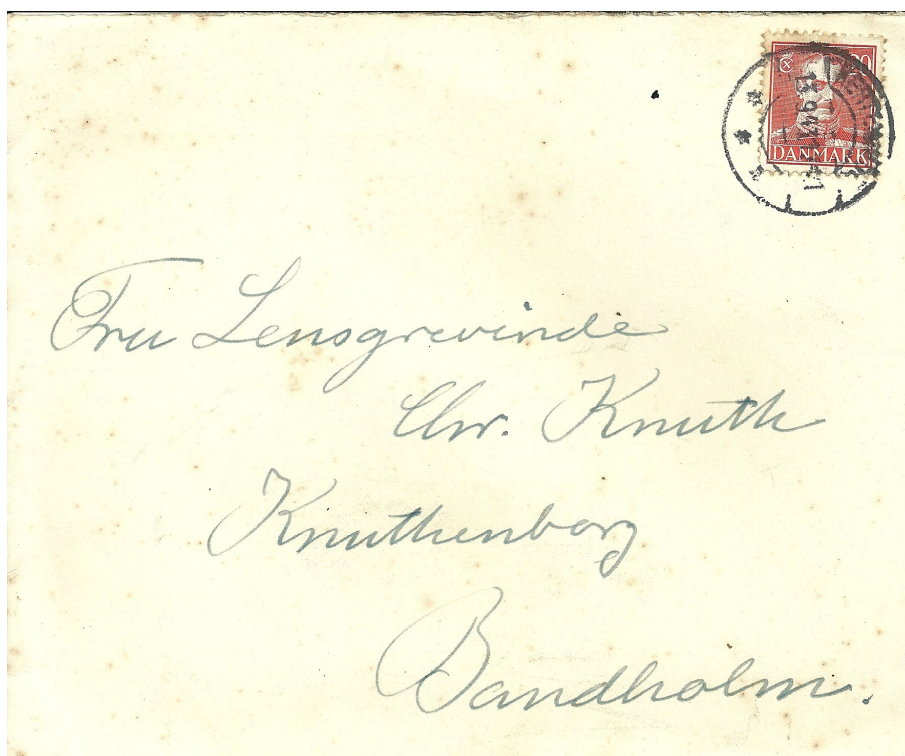 DANMARK
Fru Lensgrevinde
Chr. Knuth
Knuthenborg
Bandholm.